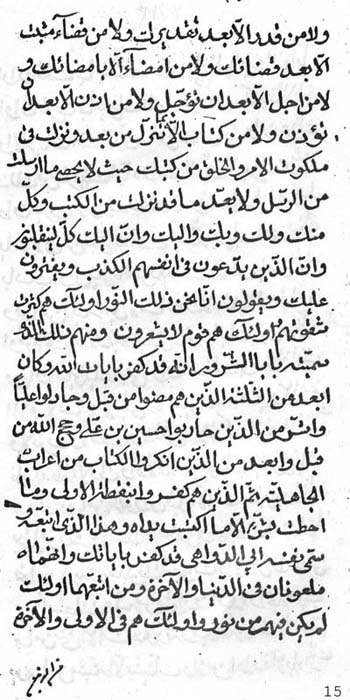 ولا من قدر الا بعد تقديرك ولا من قضآء مثبت
الا بعد قضائك ولا من امضآء الا بامضائك و
لا من اجل الا بعد ان تؤجل ولا من اذن الا بعد ان
تؤذن ولا من كتاب الا لتنزل من بعد ونزلت فى
ملكوت الامر والخلق من كتبك حيث لا يحصى ما ارسلت
من الرسل ولا يعد ما قد نزلت من الكتب وكل
منك ولك وبك واليك وان اليك كل ينقلبون
وان الذين يدعون فى انفسهم الكذب ويفترون
عليك ويقولون انا نحن ذلك النور اولئك هم
اولئك هم قوم لا يشعرون ومنهم ذلك الذى
سميته بابا الشرور انه قد كفر باياتك الله وكان
ابعد من الثلثة الذين هم مضوا من قبل وجادلوا عليا
واشر من الذين حاربوا حسين بن على وحجج الله من
قبل وابعد من الذين انكروا الكتاب من اعراب
الجاهلية ثم الذين هم كفروا بنقطة الاولى وما
احطت بشر الا ما اكتسبت يداه وهذا الذى اتبعه و
سمى نفسه ابى الدواهى قد كفر باياتك وانهما
ملعونان فى الدنيا والاخرة ومن اتبعهما اولئك
لم يكن فيهم من نور واولئك هم فى الاولى والاخرة
15